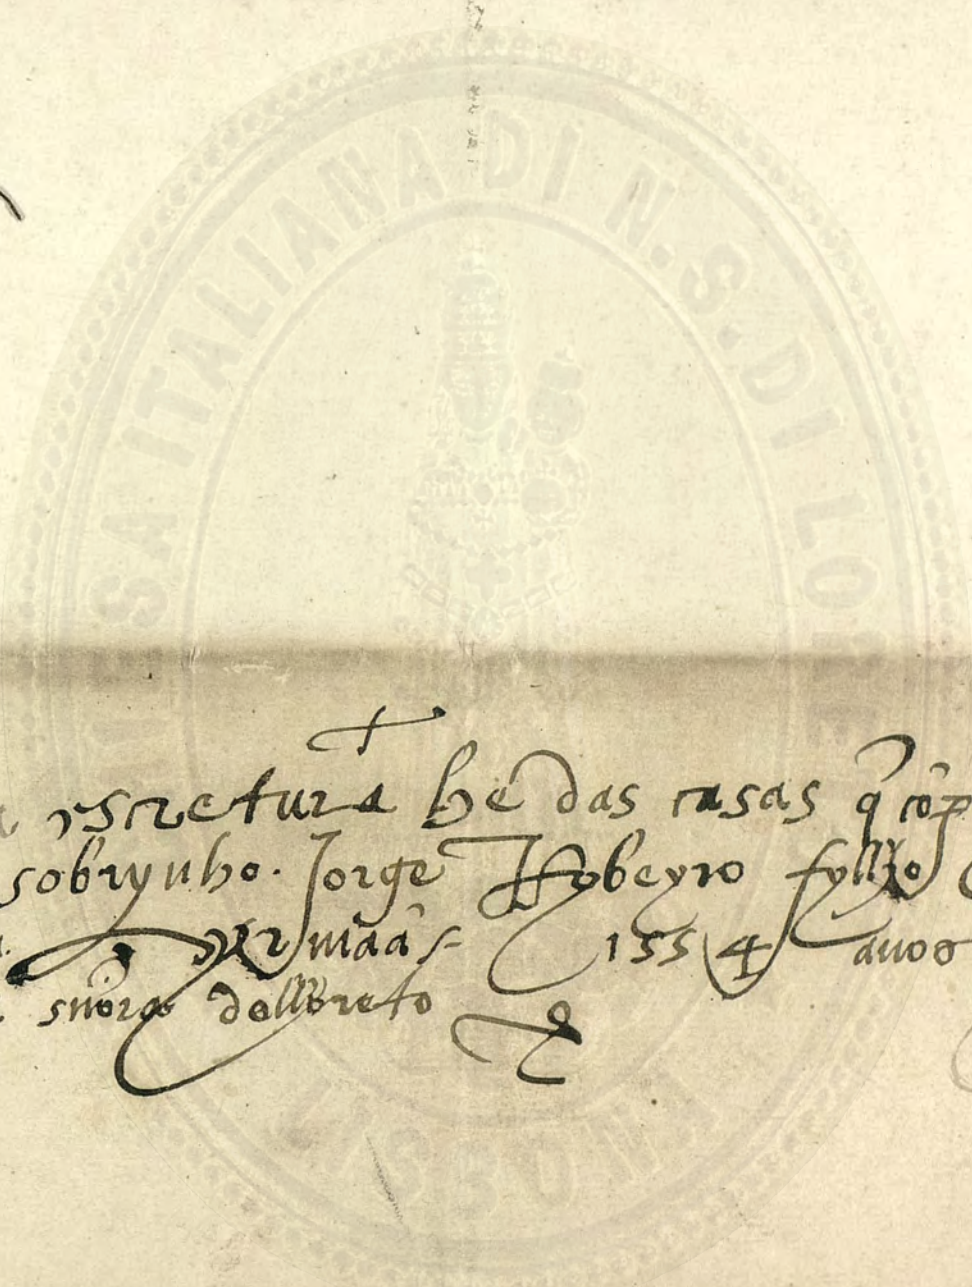 SA ITALIANA DI N. S. DI LO
escretura he das casas q̃ cõp
sobrynho. Jorge Rybeyro fylho
Yrmãas 1554 anos
sñora dell loreto
LISBONA